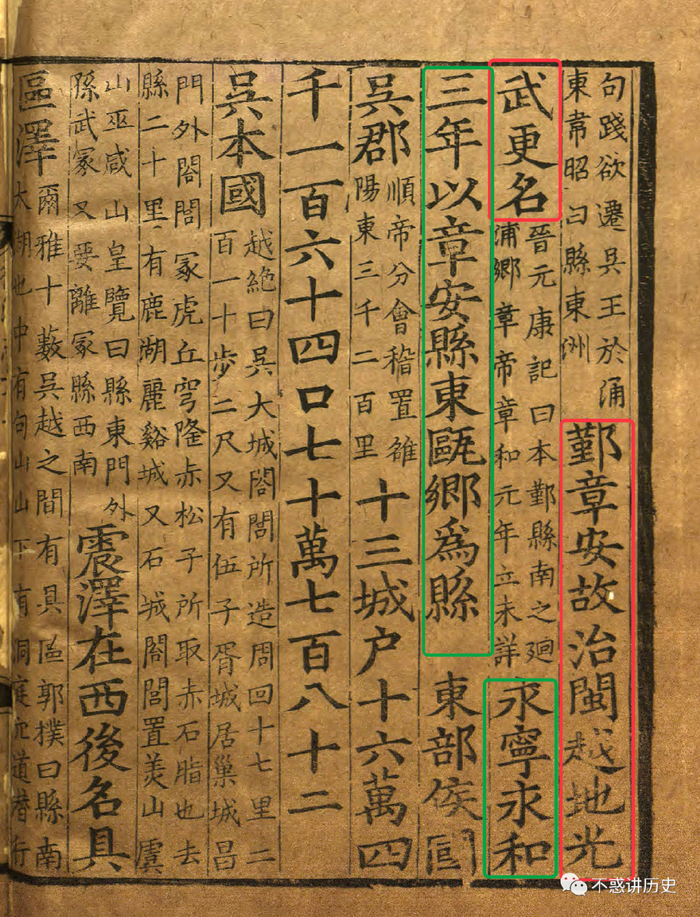 句踐欲遷吳王於涌
東韋昭曰縣東洲
鄞章安故治閩越地光
武更名
晉元康記曰本鄞縣南之廻
浦鄉章帝章和元年立未詳
永寧永和
三年以章安縣東甌鄉爲縣 東部侯國
吳郡
順帝分會稽置雒
陽東三千二百里
十三城户十六萬四
千一百六十四口七十萬七百八十二
吳本國
越絕曰吳大城閤閭所造周回十七里二
百一十步二尺又有伍子胥城居巢城昌
門外閤閭冢虎丘穹隆赤松子所取赤石脂也去
縣二十里有鹿湖麗谿城又石城閤閭置美山虞
山巫咸山皇覽曰縣東門外
孫武冢又要離冢縣西南
震澤在西後名具
區澤
爾雅十藪吳越之間有具區郭樸曰縣南
太湖也中有山山下有洞庭穴道潛行
不惑讲历史